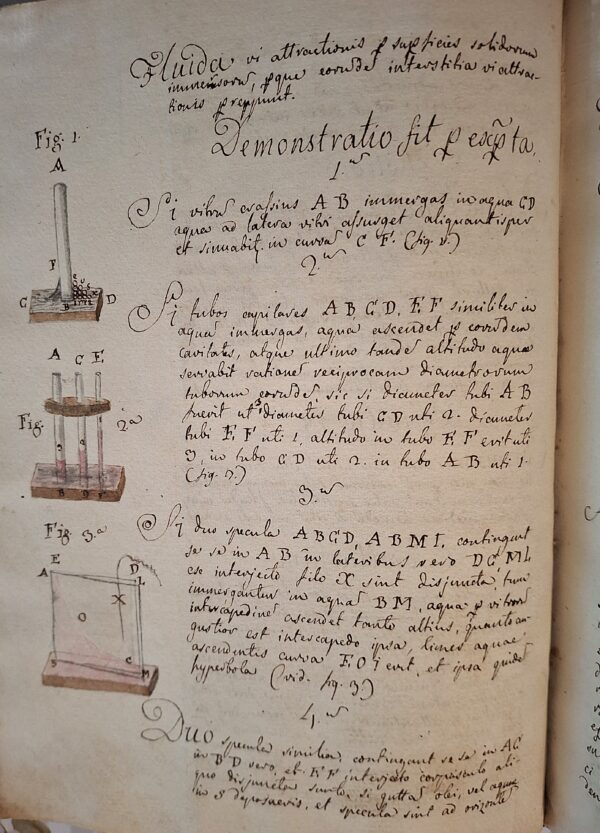 Fluida vi attractionis p supficies solidorum
immersorū, pque eorūdē interstitia vi attrac-
tionis prepunt.
Demonstratio fit p
1.
Si vitrū crassius AB immergas in aqua CD
aqua ad latera vitri assurget aliquantisper
et sinuabit in curvā CF. (fig. 1.)
2.
Si tubos capilares AB, CD, EF similiter in
aquā immergas, aqua ascendet p eorūdem
cavitates, atque ultimo tandē altitudo aquæ
servabit rationē reciprocam diametrorum
tuborum eorūdē, sic si diameter tubi AB
fuerit ut 3 diameter tubi CD uti 2. diameter
tubi EF uti 1, altitudo in tubo EF erit uti
3, in tubo CD uti 2. in tubo AB uti 1.
(fig. 2.)
3.
Si duo specula ABCD, ABML, contingant
se se in AB in lateribus vero DC, ML
interjecto filo X sint disjuncta, tum
immergantur in aquā BM, aqua p vitrorū
intercapedinē ascendet tanto altius, quanto an-
gustior est intercapedo ipsa, linea aquae
ascendentis curva EO erit, et ipsa quidē
hyperbola (vid. fig. 3.)
4.
Duo specula similia contingant se se in AC
in BD vero, et EF interjecto corpusculo ali-
quo disjuncta sunto, si gutta olei, vel aquæ
in deposueris, et specula sint ad orizontē
Fig. 1.
A
F
C
B
D
A C E
Fig. 2a
B D F
Fig. 3.a
E
A
D
L
X
O
B
C
M